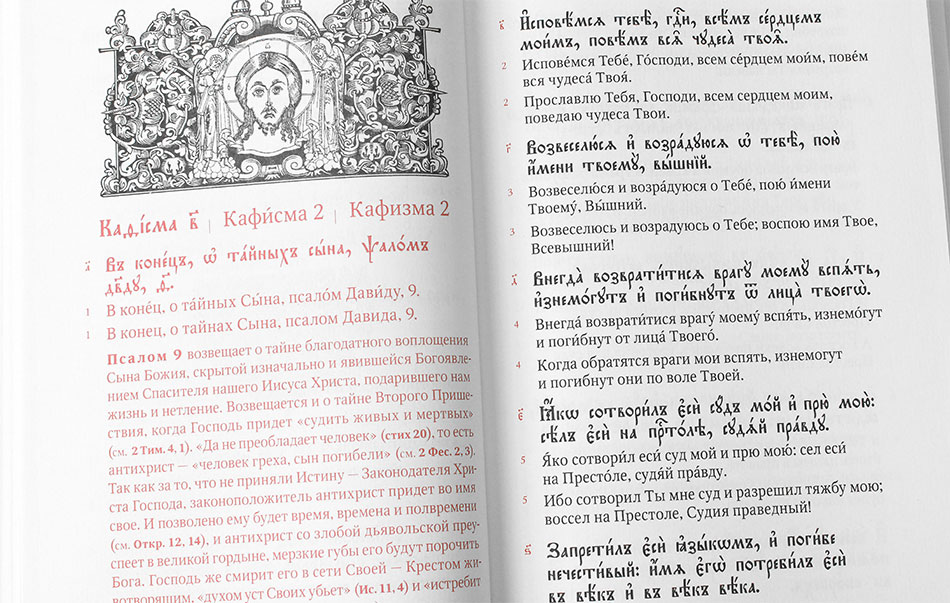 Каѳі́сма в҃ | Кафи́сма 2 | Кафизма 2
а҃ Въ коне́цъ, ѡ҆ та́йныхъ сы́на, ѱало́мъ
дв҃ду, ѳ҃.
1 В коне́ц, о та́йных Сы́на, псало́м Дави́ду, 9.
1 В конец, о тайнах Сына, псалом Давида, 9.
Псалом 9 возвещает о тайне благодатного воплощения
Сына Божия, скрытой изначально и явившейся Богоявле-
нием Спасителя нашего Иисуса Христа, подарившего нам
жизнь и нетление. Возвещается и о тайне Второго Прише-
ствия, когда Господь придет «судить живых и мертвых»
(см. 2 Тим. 4, 1). «Да не преобладает человек» (стих 20), то есть
антихрист — «человек греха, сын погибели» (см. 2 Фес. 2, 3).
Так как за то, что не приняли Истину — Законодателя Хри-
ста Господа, законоположитель антихрист придет во имя
свое. И позволено ему будет время, времена и полвремени
(см. Откр. 12, 14), и антихрист со злобой дьявольской преу-
спеет в великой гордыне, мерзкие губы его будут порочить
Бога. Господь же смирит его в сети Своей — Крестом жи-
вотворящим, «духом уст Своих убьет» (Ис. 11, 4) и «истребит
в҃ И҆сповѣ́мся тебѣ̀, гдⷭ҇и, всѣ́мъ се́рдцемъ
мои́мъ, повѣ́мъ всѧ̑ чꙋдеса̀ твоѧ̑.
2 Испове́мся Тебе́, Го́споди, всем се́рдцем мои́м, пове́м
вся чудеса́ Твоя́.
2 Прославлю Тебя, Господи, всем сердцем моим,
поведаю чудеса Твои.
г҃ Возвеселю́ся и҆ возра́дꙋюся ѡ҆ тебѣ̀, пою̀
и҆́мени твоемꙋ̀, вы́шнїй.
3 Возвеселю́ся и возра́дуюся о Тебе́, пою́ и́мени
Твоему́, Вы́шний.
3 Возвеселюсь и возрадуюсь о Тебе; воспою имя Твое,
Всевышний!
д҃ Внегда̀ возврати́тися врагꙋ̀ моемꙋ̀ вспѧ́ть,
и҆знемо́гꙋтъ и҆ поги́бнꙋтъ ѿ лица̀ твоегѡ̀.
4 Внегда́ возврати́тися врагу́ моему́ вспя́ть, изнемо́гут
и поги́бнут от лица́ Твоего́.
4 Когда обратятся враги мои вспять, изнемогут
и погибнут они по воле Твоей.
є҃ Ꙗ҆́кѡ сотвори́лъ є҆сѝ сꙋ́дъ мо́й и҆ прю̀ мою̀:
сѣ́лъ є҆сѝ на прⷭ҇то́лѣ, сꙋдѧ́й пра́вдꙋ.
5 Я́ко сотвори́л еси́ суд мой и прю мою́: сел еси́
на Престо́ле, судя́й пра́вду.
5 Ибо сотворил Ты мне суд и разрешил тяжбу мою;
воссел на Престоле, Судия праведный!
ѕ҃ Запрети́лъ є҆сѝ ꙗ҆зы́кѡмъ, и҆ поги́бе
нечести́вый: и҆́мѧ є҆гѡ̀ потреби́лъ є҆сѝ
въ вѣ́къ и҆ въ вѣ́къ вѣ́ка.